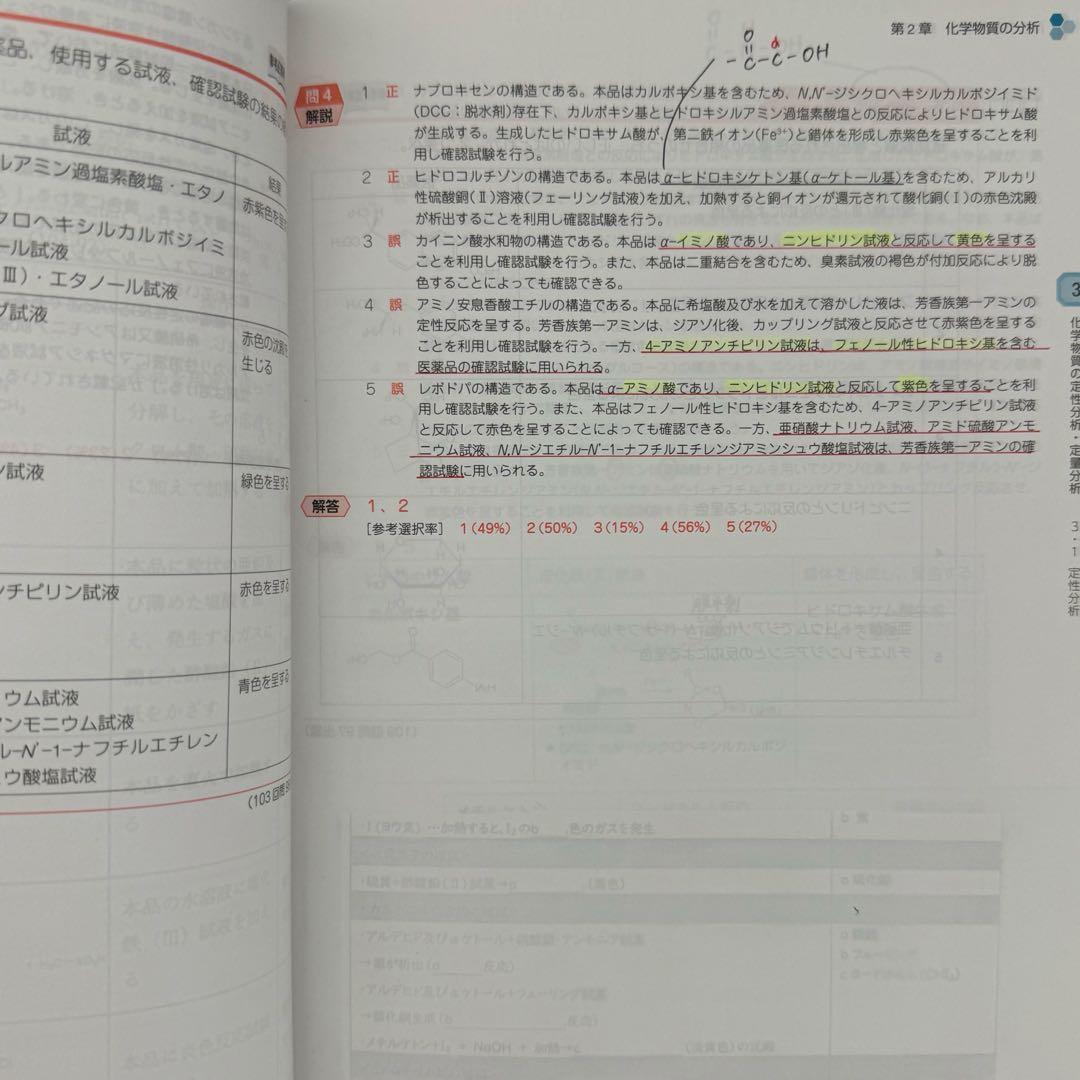 薬品、使用する試液、確認試験の結果の
試液
結果
ルアミン過塩素酸塩・エタノ
赤紫色を呈
クロヘキシルカルボジイミ
ール試液
(Ⅲ)・エタノール試液
グ試液
赤色の沈殿を
生じる
ン試液
緑色を呈する
ンチピリン試液
赤色を呈する
ウム試液
青色を呈する
アンモニウム試液
ル-N'-1-ナフチルエチレン
ュウ酸塩試液
(103回問
第2章 化学物質の分析
O α
-C-C-OH
問4
解説
1 正 ナプロキセンの構造である。本品はカルボキシ基を含むため、N,N'-ジシクロヘキシルカルボジイミド
(DCC:脱水剤)存在下、カルボキシ基とヒドロキシルアミン過塩素酸塩との反応によりヒドロキサム酸
が生成する。生成したヒドロキサム酸が、第二鉄イオン(Fe³⁺)と錯体を形成し赤紫色を呈することを利
用し確認試験を行う。
2 正 ヒドロコルチゾンの構造である。本品はα-ヒドロキシケトン基(α-ケトール基)を含むため、アルカリ
性硫酸銅(Ⅱ)溶液(フェーリング試液)を加え、加熱すると銅イオンが還元されて酸化銅(Ⅰ)の赤色沈殿
が析出することを利用し確認試験を行う。
3 誤 カイニン酸水和物の構造である。本品はα-イミノ酸であり、ニンヒドリン試液と反応して黄色を呈する
ことを利用し確認試験を行う。また、本品は二重結合を含むため、臭素試液の褐色が付加反応により脱
色することによっても確認できる。
4 誤 アミノ安息香酸エチルの構造である。本品に希塩酸及び水を加えて溶かした液は、芳香族第一アミンの
定性反応を呈する。芳香族第一アミンは、ジアゾ化後、カップリング試液と反応させて赤紫色を呈する
ことを利用し確認試験を行う。一方、4-アミノアンチピリン試液は、フェノール性ヒドロキシ基を含む
医薬品の確認試験に用いられる。
5 誤 レボドパの構造である。本品はα-アミノ酸であり、ニンヒドリン試液と反応して紫色を呈することを利
用し確認試験を行う。また、本品はフェノール性ヒドロキシ基を含むため、4-アミノアンチピリン試液
と反応して赤色を呈することによっても確認できる。一方、亜硝酸ナトリウム試液、アミド硫酸アンモ
ニウム試液、N,N-ジエチル-N'-1-ナフチルエチレンジアミンシュウ酸塩試液は、芳香族第一アミンの確
認試験に用いられる。
解答 1、2
[参考選択率] 1(49%) 2(50%) 3(15%) 4(56%) 5(27%)
3
化学物質の定性分析・定量分析
3・1 定性分析